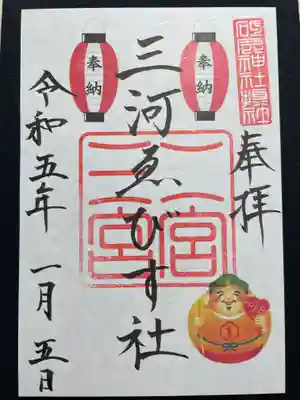 砥鹿神社
奉拝
奉納
奉納
三河ゑびす社
二宮
三宮
令和五年 一月 五日
1